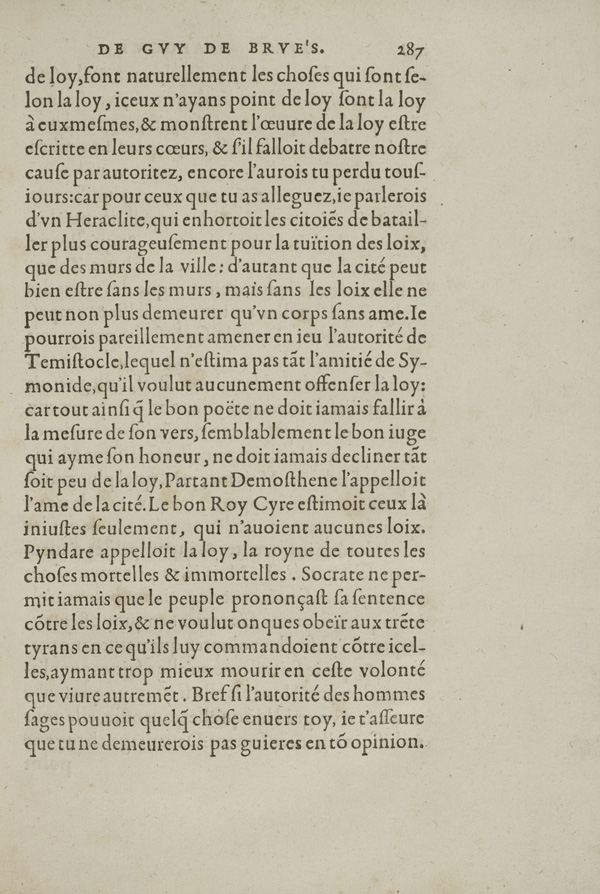 DE GVY DE BRVE'S. 287
de loy, font naturellement les choſes qui ſont ſe-
lon la loy, iceux n'ayans point de loy ſont la loy
à euxmeſmes, & monſtrent l'œuure de la loy eſtre
eſcritte en leurs cœurs, & s'il falloit debatre noſtre
cauſe par autoritez, encore l'aurois tu perdu touſ-
iours: car pour ceux que tu as alleguez, ie parlerois
d'vn Heraclite, qui enhortoit les citoiés de batail-
ler plus courageuſement pour la tuïtion des loix,
que des murs de la ville: d'autant que la cité peut
bien eſtre ſans les murs, mais ſans les loix elle ne
peut non plus demeurer qu'vn corps ſans ame. Ie
pourrois pareillement amener en ieu l'autorité de
Temiſtocle, lequel n'eſtima pas tãt l'amitié de Sy-
monide, qu'il voulut aucunement offenſer la loy:
car tout ainſi q̃ le bon poëte ne doit iamais fallir à
la meſure de ſon vers, ſemblablement le bon iuge
qui ayme ſon honeur, ne doit iamais decliner tãt
ſoit peu de la loy, Partant Demoſthene l'appelloit
l'ame de la cité. Le bon Roy Cyre eſtimoit ceux là
iniuſtes ſeulement, qui n'auoient aucunes loix.
Pyndare appelloit la loy, la royne de toutes les
choſes mortelles & immortelles. Socrate ne per-
mit iamais que le peuple prononçaſt ſa ſentence
cõtre les loix, & ne voulut onques obeïr aux trẽte
tyrans en ce qu'ils luy commandoient cõtre icel-
les, aymant trop mieux mourir en ceſte volonté
que viure autremẽt. Bref ſi l'autorité des hommes
ſages pouuoit quelq̃ choſe enuers toy, ie t'aſſeure
que tu ne demeurerois pas guieres en tõ opinion.